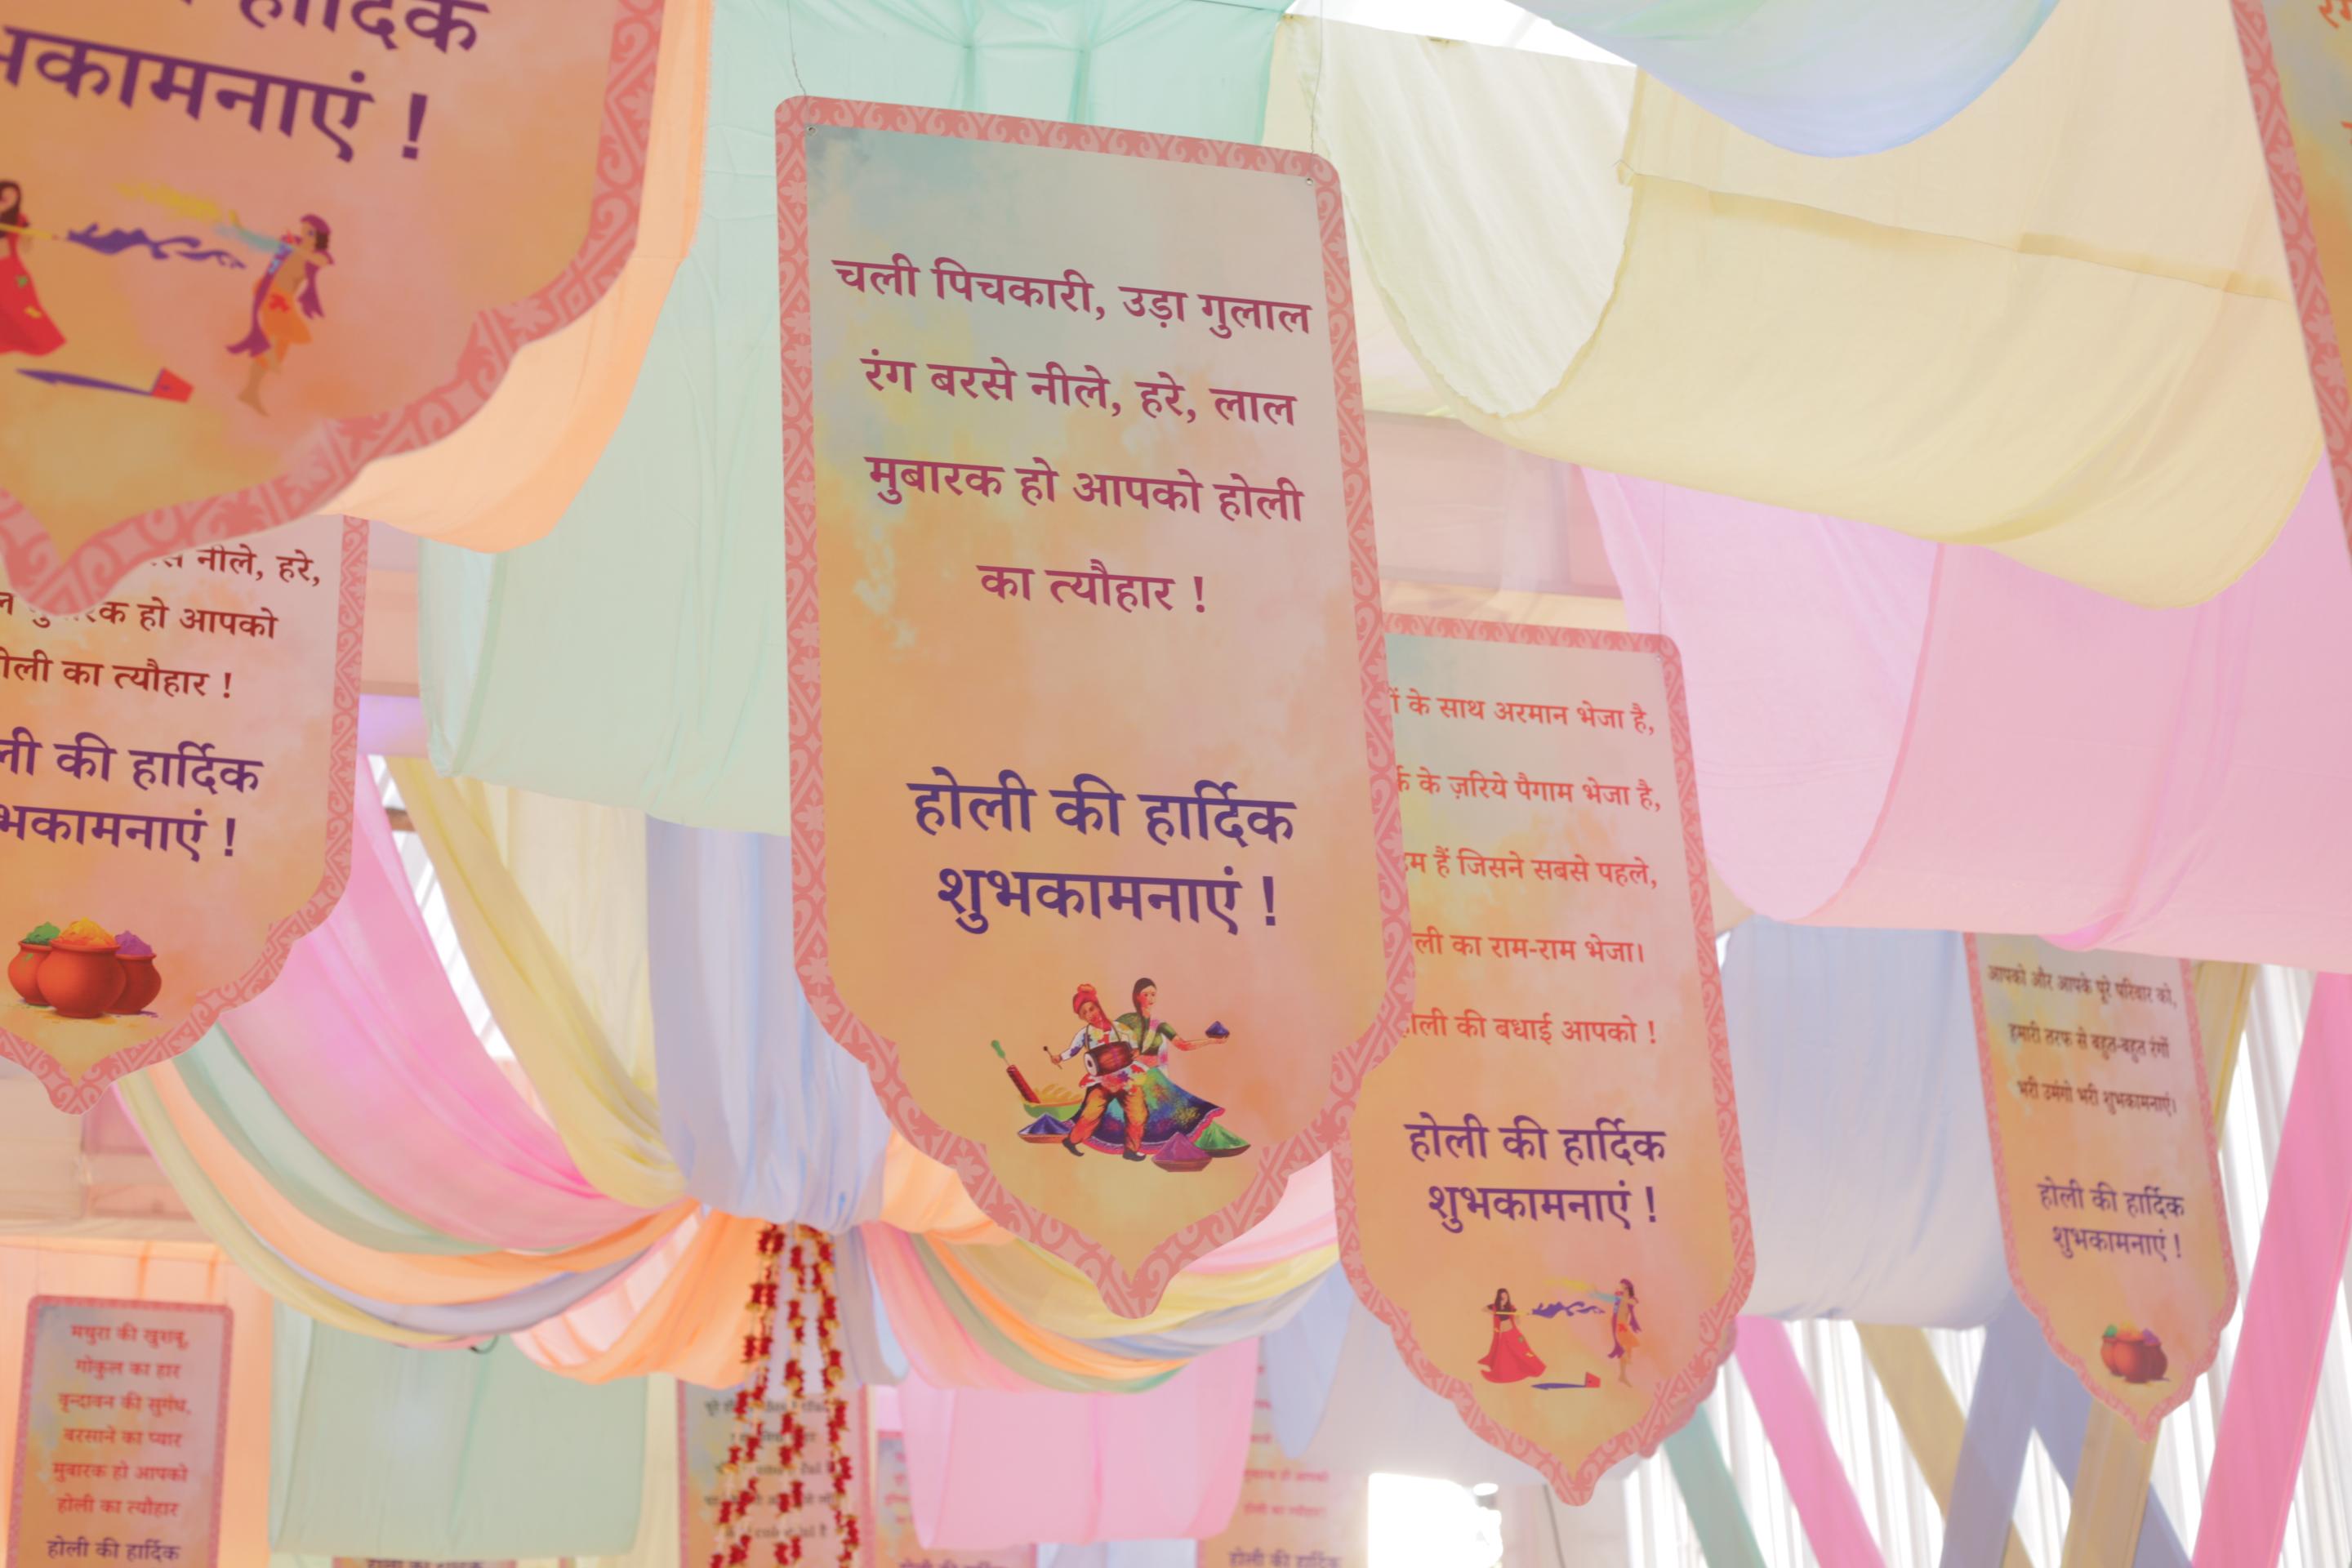 हार्दिक
शुभकामनाएं !
नीले, हरे,
हो आपको
होली का त्यौहार !
की हार्दिक
शुभकामनाएं !
चली पिचकारी, उड़ा गुलाल
रंग बरसे नीले, हरे, लाल
मुबारक हो आपको होली
का त्यौहार !
होली की हार्दिक
शुभकामनाएं !
के साथ अरमान भेजा है,
के ज़रिये पैगाम भेजा है,
हम हैं जिसने सबसे पहले,
का राम-राम भेजा।
होली की बधाई आपको !
होली की हार्दिक
शुभकामनाएं !
आपको और आपके पूरे परिवार को,
हमारी तरफ से बहुत-बहुत रंगों
भरी उमंगो भरी शुभकामनाएं।
होली की हार्दिक
शुभकामनाएं !
मथुरा की खुशबू,
गोकुल का हार
वृन्दावन की सुगंध,
बरसाने का प्यार
मुबारक हो आपको
होली का त्यौहार
होली की हार्दिक